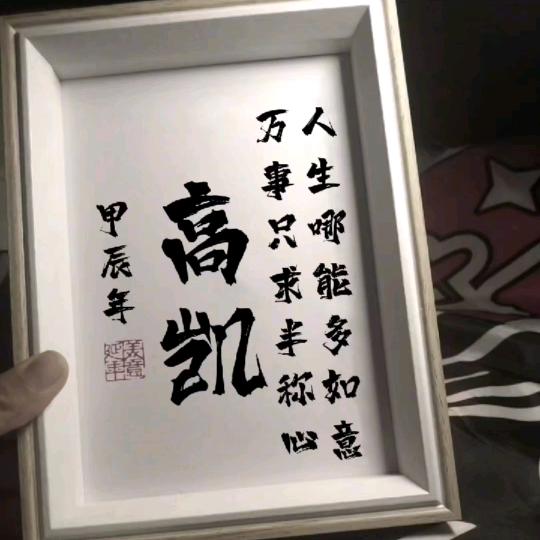 人生哪能多如意
万事只求半称心
高凯
甲辰年
美意延年